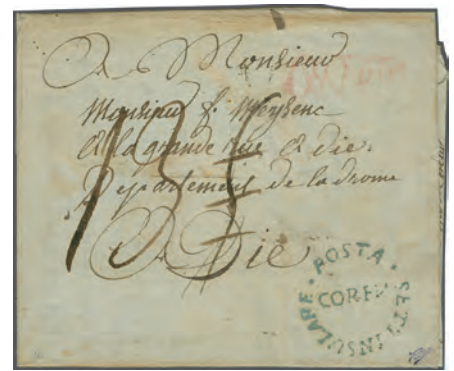 A Monsieur
Monsieur f. Meysenc
A la grande rue A die.
Departement de la drome
A Die
POSTA
SETTINSULARE
CORFU